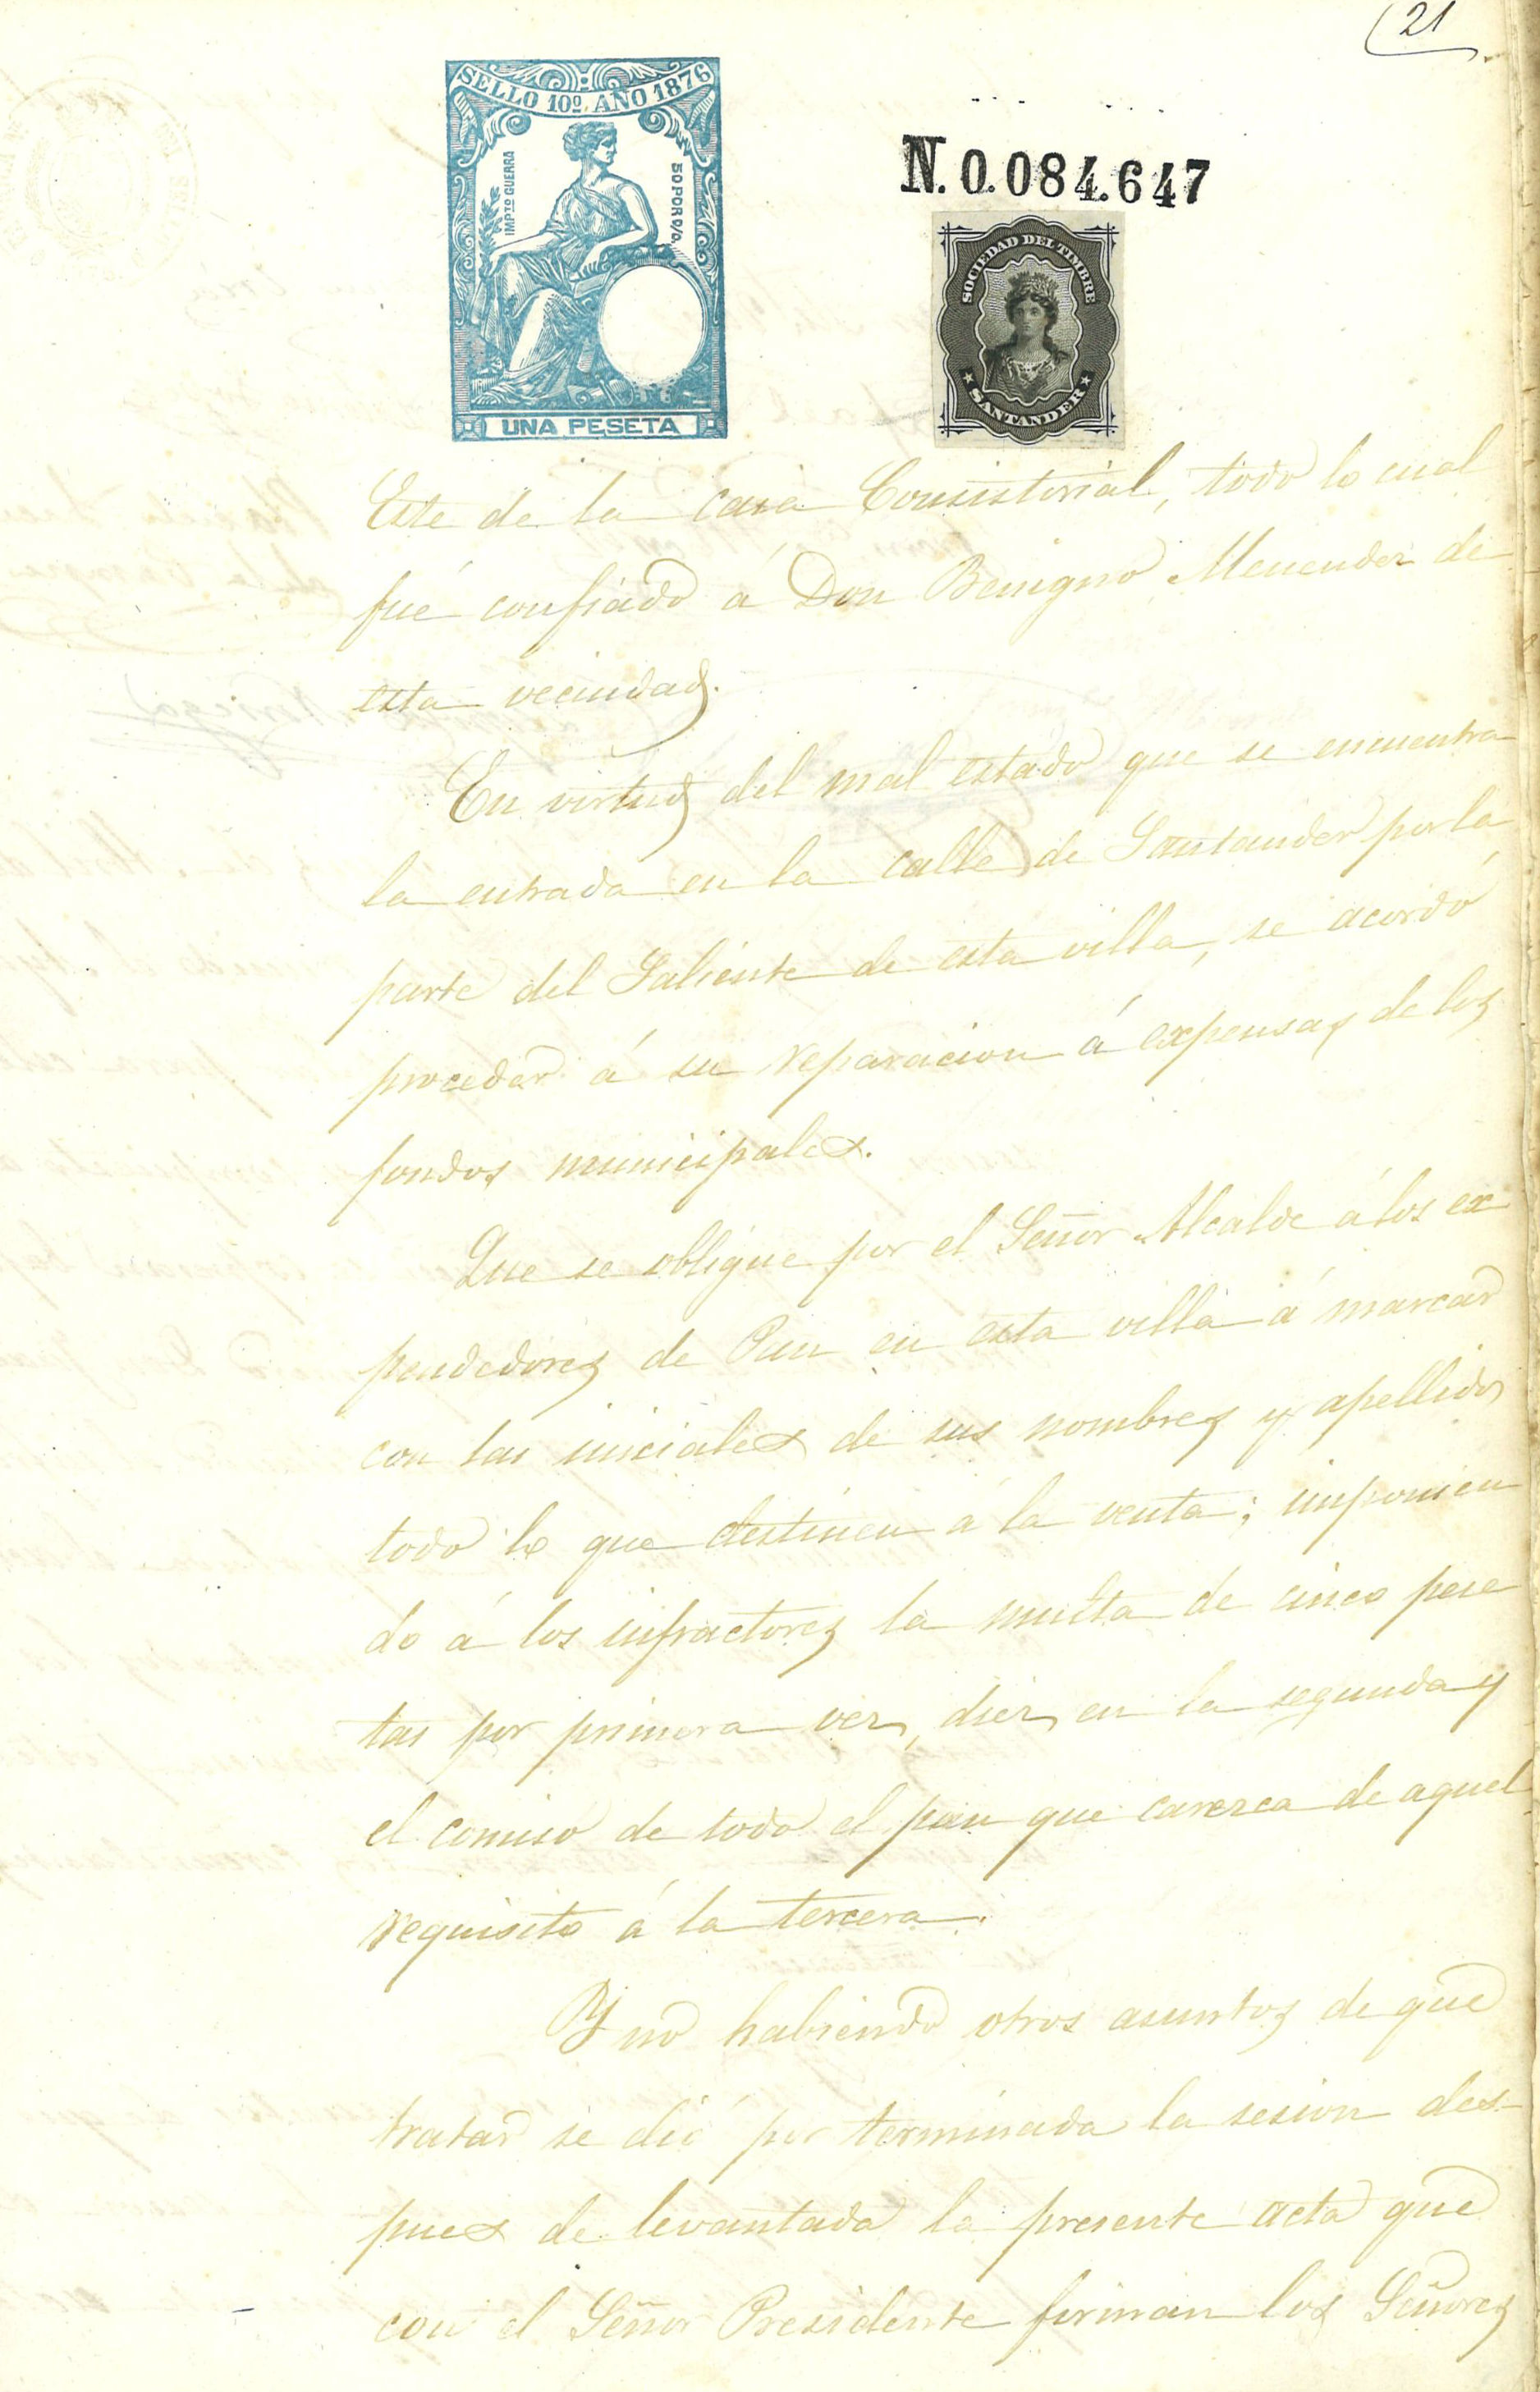 21
SELLO 10º AÑO 1876
IMPTO GUERRA
50 POR 0/0.
UNA PESETA
N. 0.084.647
SOCIEDAD DEL TIMBRE
SANTANDER
Este de la casa Consistorial, todo lo cual
fué confiado á Don Benigno Menendez de
esta vecindad.
En virtud del mal estado que se encuentra
la entrada en la calle de Santander por la
parte del Saliente de esta villa, se acordó
proceder á su reparacion á expensas de los
fondos municipales.
Que se obligue por el Señor Alcalde á los ex
pendedores de Pan en esta villa á marcar
con las iniciales de sus nombres y apellidos
todo lo que destinen á la venta; imponien
do á los infractores la multa de cinco pese
tas por primera vez, diez, en la segunda y
el comiso de todo el pan que carezca de aquel
requisito á la tercera.
Y no habiendo otros asuntos de que
tratar se dió por terminada la sesion des-
pues de levantada la presente acta que
con el Señor Presidente firman los Señores